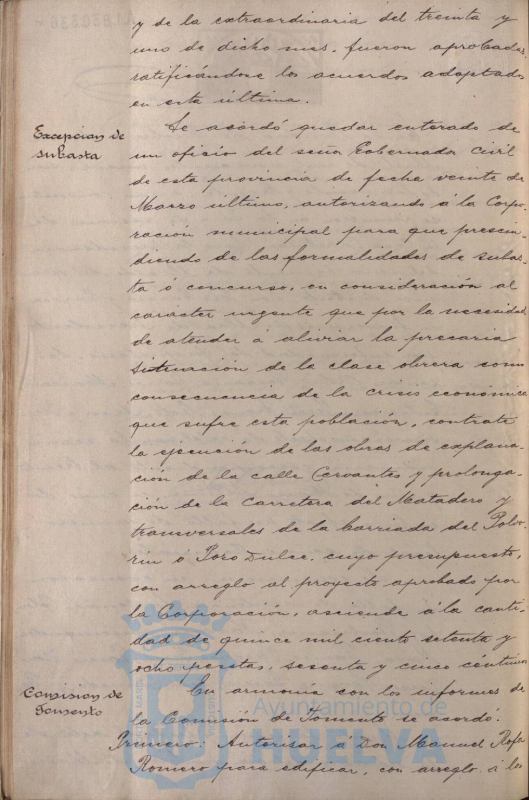 y de la extraordinaria del treinta y
uno de dicho mes, fueron aprobadas,
ratificándose los acuerdos adoptados
en esta última.
Excepcion de
subasta
Se acordó quedar enterado de
un oficio del señor Gobernador Civil
de esta provincia de fecha veinte de
Marzo último, autorizando á la Corpo-
ración municipal para que prescin-
diendo de las formalidades de subas-
ta ó concurso, en consideración al
carácter urgente que por la necesidad
de atender á aliviar la precaria
situación de la clase obrera como
consecuencia de la crisis económica
que sufre esta población, contrate
la ejecución de las obras de explana-
ción de la calle Cervantes y prolonga-
ción de la Carretera del Matadero y
transversales de la barriada del Polvo-
rin ó Pozo Dulce, cuyo presupuesto,
con arreglo al proyecto aprobado por
la Corporación, asciende á la canti-
dad de quince mil ciento setenta y
ocho pesetas, sesenta y cinco céntimos
Comision de
Fomento
En armonía con los informes de
la Comisión de Fomento se acordó:
Primero: Autorizar a Don Manuel
Romero para edificar, con arreglo á los
Ayuntamiento de
HUELVA